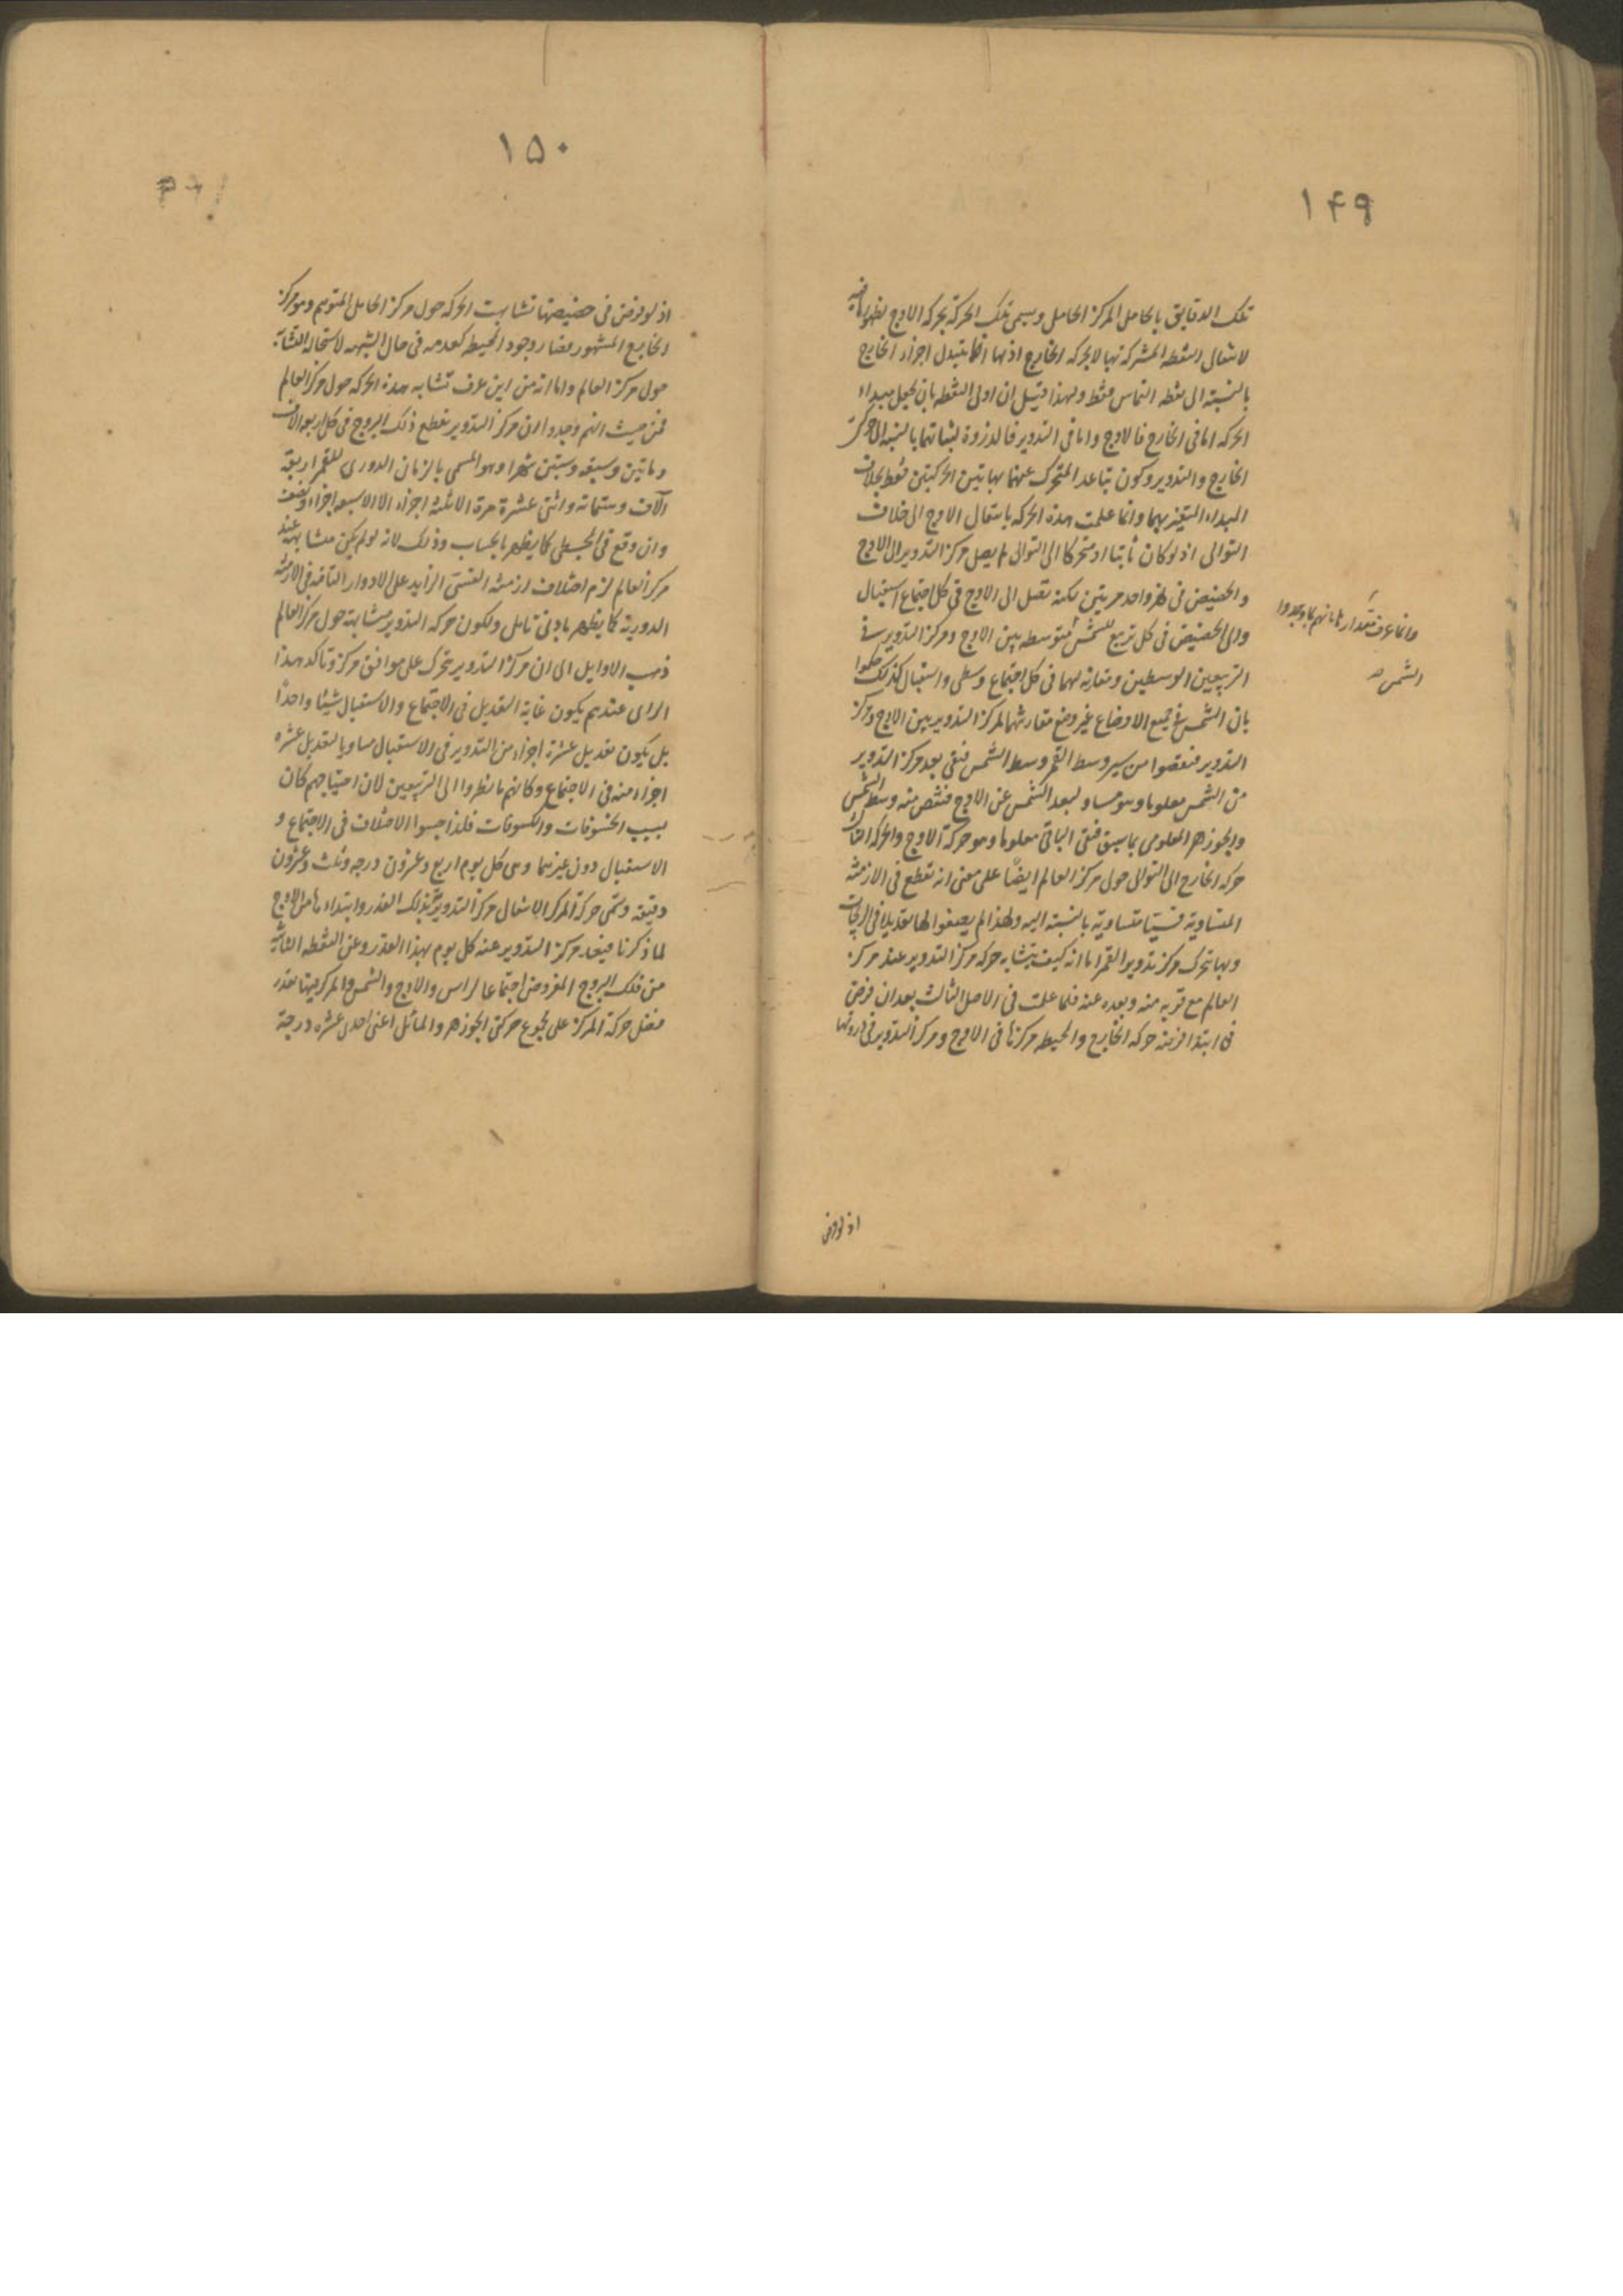 ١٤٩
تلك الدقايق بالحامل المركز الحامل ويسمى تلك الحركة بحركة الاوج لظهورها فيه
لانتقال النقطة المشتركة بها لا بحركة الخارج اذ بها انما يتبدل اجزاء الخارج
بالنسبة الى نقطة التماس فقط ولهذا قيل ان اولى النقطة بان يجعل مبداء
الحركة اما في الخارج فالاوج واما في التدوير فالذروة لثباتهما بالنسبة الى مركز
الخارج والتدوير وكون تباعد المتحرك عنهما بهاتين الحركتين فقط بخلاف
المبداء المتغير بهما وانما علمت هذه الحركة بانتقال الاوج الى خلاف
التوالى اذ لو كان ثابتا او متحركا الى التوالى لم يصل مركز التدوير الى الاوج
والحضيض في شهر واحد مرتين لكنه تصل الى الاوج في كل اجتماع استقبال
والى الحضيض في كل تربيع للشمس متوسطة بين الاوج ومركز التدوير في
التربيعين الوسطين ومقارنة لهما في كل اجتماع وسطى واستقبال كذلك حكموا
بان الشمس في جميع الاوضاع غير وضع مقارنتها لمركز التدوير بين الاوج ومركز
التدوير فنقصوا من سير وسط القمر وسط الشمس فبقى بعد مركز التدوير
من الشمس معلوما وهو مساو لبعد الشمس عن الاوج فنقص منه وسط الشمس
والجوزهر المعلومى بما سبق فبقى الباقى معلوما وهو حركة الاوج والحركة الثالثة
حركة الخارج الى التوالى حول مركز العالم ايضًا على معنى انه تقطع في الازمنة
المتساوية قسيّا متساوية بالنسبة اليه ولهذا لم يضعوا لها تعديلا في الزيجات
وبها يتحرك مركز تدوير القمر اما انه كيف يتشابه حركة مركز التدوير عند مركز
العالم مع قربه منه وبعده عنه فلما علمت في الاصل الثالث بعد ان فرض
في ابتدا ازمنة حركة الخارج والمحيطة مركزها في الاوج ومركز التدوير في ذروتها
وانما عرف مقدارها بانهم لما وجدوا
الشمس
اذ لو فرض
١٥٠
اذ لو فرض في حضيضها تشابهت الحركة حول مركز الحامل المتوهم وهو مركز
الخارج المشهور فصار وجود المحيطة كعدمه في حال الشبهة لاستحالة التشابه
حول مركز العالم واما انه من اين عرف تشابه هذه الحركة حول مركز العالم
فمن حيث انهم وجدوا ان مركز التدوير تقطع فلك البروج في كل اربعة الاف
وماتين وسبعة وستين شهرا وهو المسمى بالزمان الدورى للقمر اربعة
آلاف وستمائة واثنى عشرة مرة الا ثلثة اجزاء الا الا سبعة اجزاء ونصف
وان وقع في المجسطى كما يظهر بالحساب وذلك لانه لو لم يكن متشابهة عند
مركز العالم لزم اختلاف ازمنة القسىّ الزايد على الادوار التامة في الازمنة
الدورية كما يظهر بادنى تامل ولكون حركة التدوير متشابهة حول مركز العالم
ذهب الاوايل الى ان مركز التدوير تحرك على موافق مركز وتاكد هذا
الراى عندهم بكون غاية التعديل في الاجتماع والاستقبال شيئا واحدًا
بل بكون تعديل عشرة اجزاء من التدوير في الاستقبال مساويا لتعديل عشرة
اجزاء منه في الاجتماع وكانهم ما نظروا الى التربيعين لان احتياجهم كان
بسبب الخسوفات والكسوفات فلذا حسبوا الاختلاف في الاجتماع و
الاستقبال دون غيرهما وهى كل يوم اربع وعشرون درجة وثلث وعشرون
دقيقة وتسمى حركة المركز لانتقال مركز التدوير بذلك القدر وابتداء ها من الاوج
لما ذكرنا فيبعد مركز التدوير عنه كل يوم بهذا القدر وعن النقطة الثابتة
من فلك البروج المفروض اجتماعا لراس والاوج والشمس والمركز فيها بقدر
فضل حركة المركز على مجموع حركتى الجوزهر والمائل اعنى احدى عشرة درجة